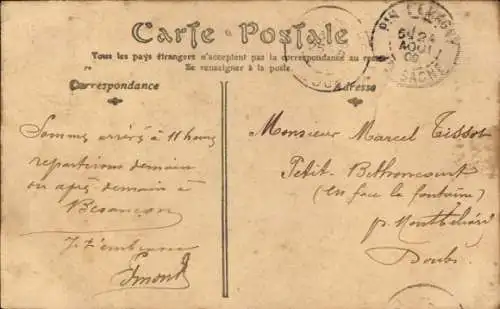 Carte Postale
Tous les pays étrangers n'acceptent pas la correspondance au
Se renseigner à la poste.
Correspondance
Adresse
Sommes arrivés à 11 heures
repartirons demain
ou après demain à
Besançon
Je t'embrasse
Monsieur Marcel Tissot
Petit-Bethoncourt
(en face la fontaine)
p. Montbéliard
Doubs
24
AOUT